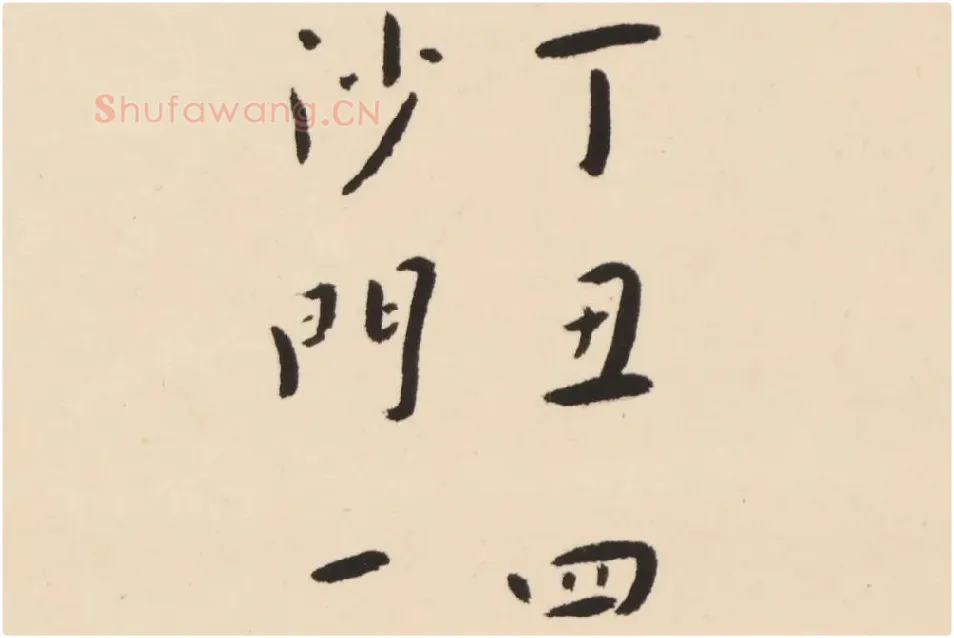 丁丑四
沙門一
Shufawang.CN